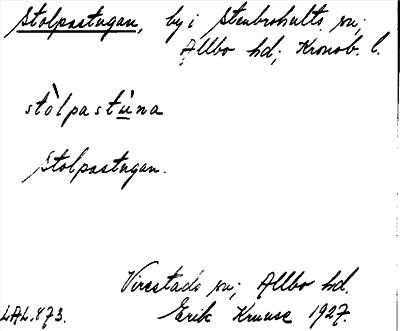 Stolpastugan, by i Stenbrohults sn;
Allbo hd; Kronob. l.
stòlpastu̇na
Stolpastugan.
Virestads sn; Allbo hd.
LAL.873. Erik Kruuse 1927.